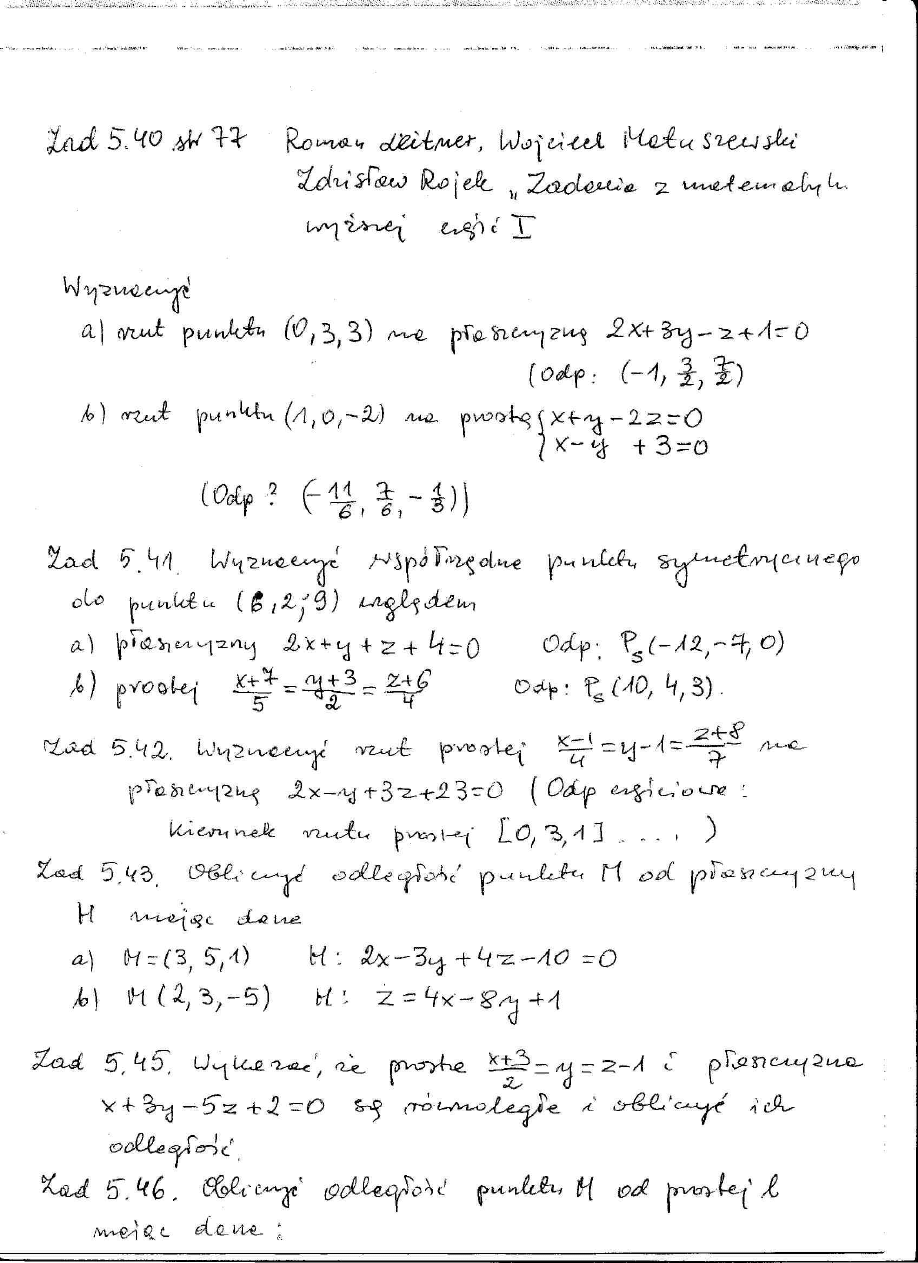 Zad 5.40 str 77 Roman Leitner, Wojciech Matuszewski
Zdzisław Rojek „Zadania z matematyki
wyższej część I
Wyznaczyć
a) rzut punktu (0,3,3) na płaszczyznę 2x+3y-z+1=0
(Odp: (-1, 3/2, 7/2)
b) rzut punktu (1,0,-2) na prostą { x+y-2z=0
x-y +3=0
(Odp ? (-11/6, 7/6, -1/3))
Zad 5.41. Wyznaczyć współrzędne punktu symetrycznego
do punktu (6,2,9) względem
a) płaszczyzny 2x+y+z+4=0 Odp: Ps(-12,-7,0)
b) prostej x+7/5 = y+3/2 = z+6/4 Odp: Ps(10,4,3).
Zad 5.42. Wyznaczyć rzut prostej x-1/4 = y-1 = z+8/7 na
płaszczyznę 2x-y+3z+23=0 (Odp częściowa:
kierunek rzutu prostej [0,3,1] ....)
Zad 5.43. Obliczyć odległość punktu M od płaszczyzny
H mając dane
a) M=(3,5,1) H: 2x-3y+4z-10=0
b) M(2,3,-5) H: z=4x-8y+1
Zad 5.45. Wykazać, że prosta x+3/2 = y = z-1 i płaszczyzna
x+3y-5z+2=0 są równoległe i obliczyć ich
odległość.
Zad 5.46. Obliczyć odległość punktu M od prostej l
mając dane: